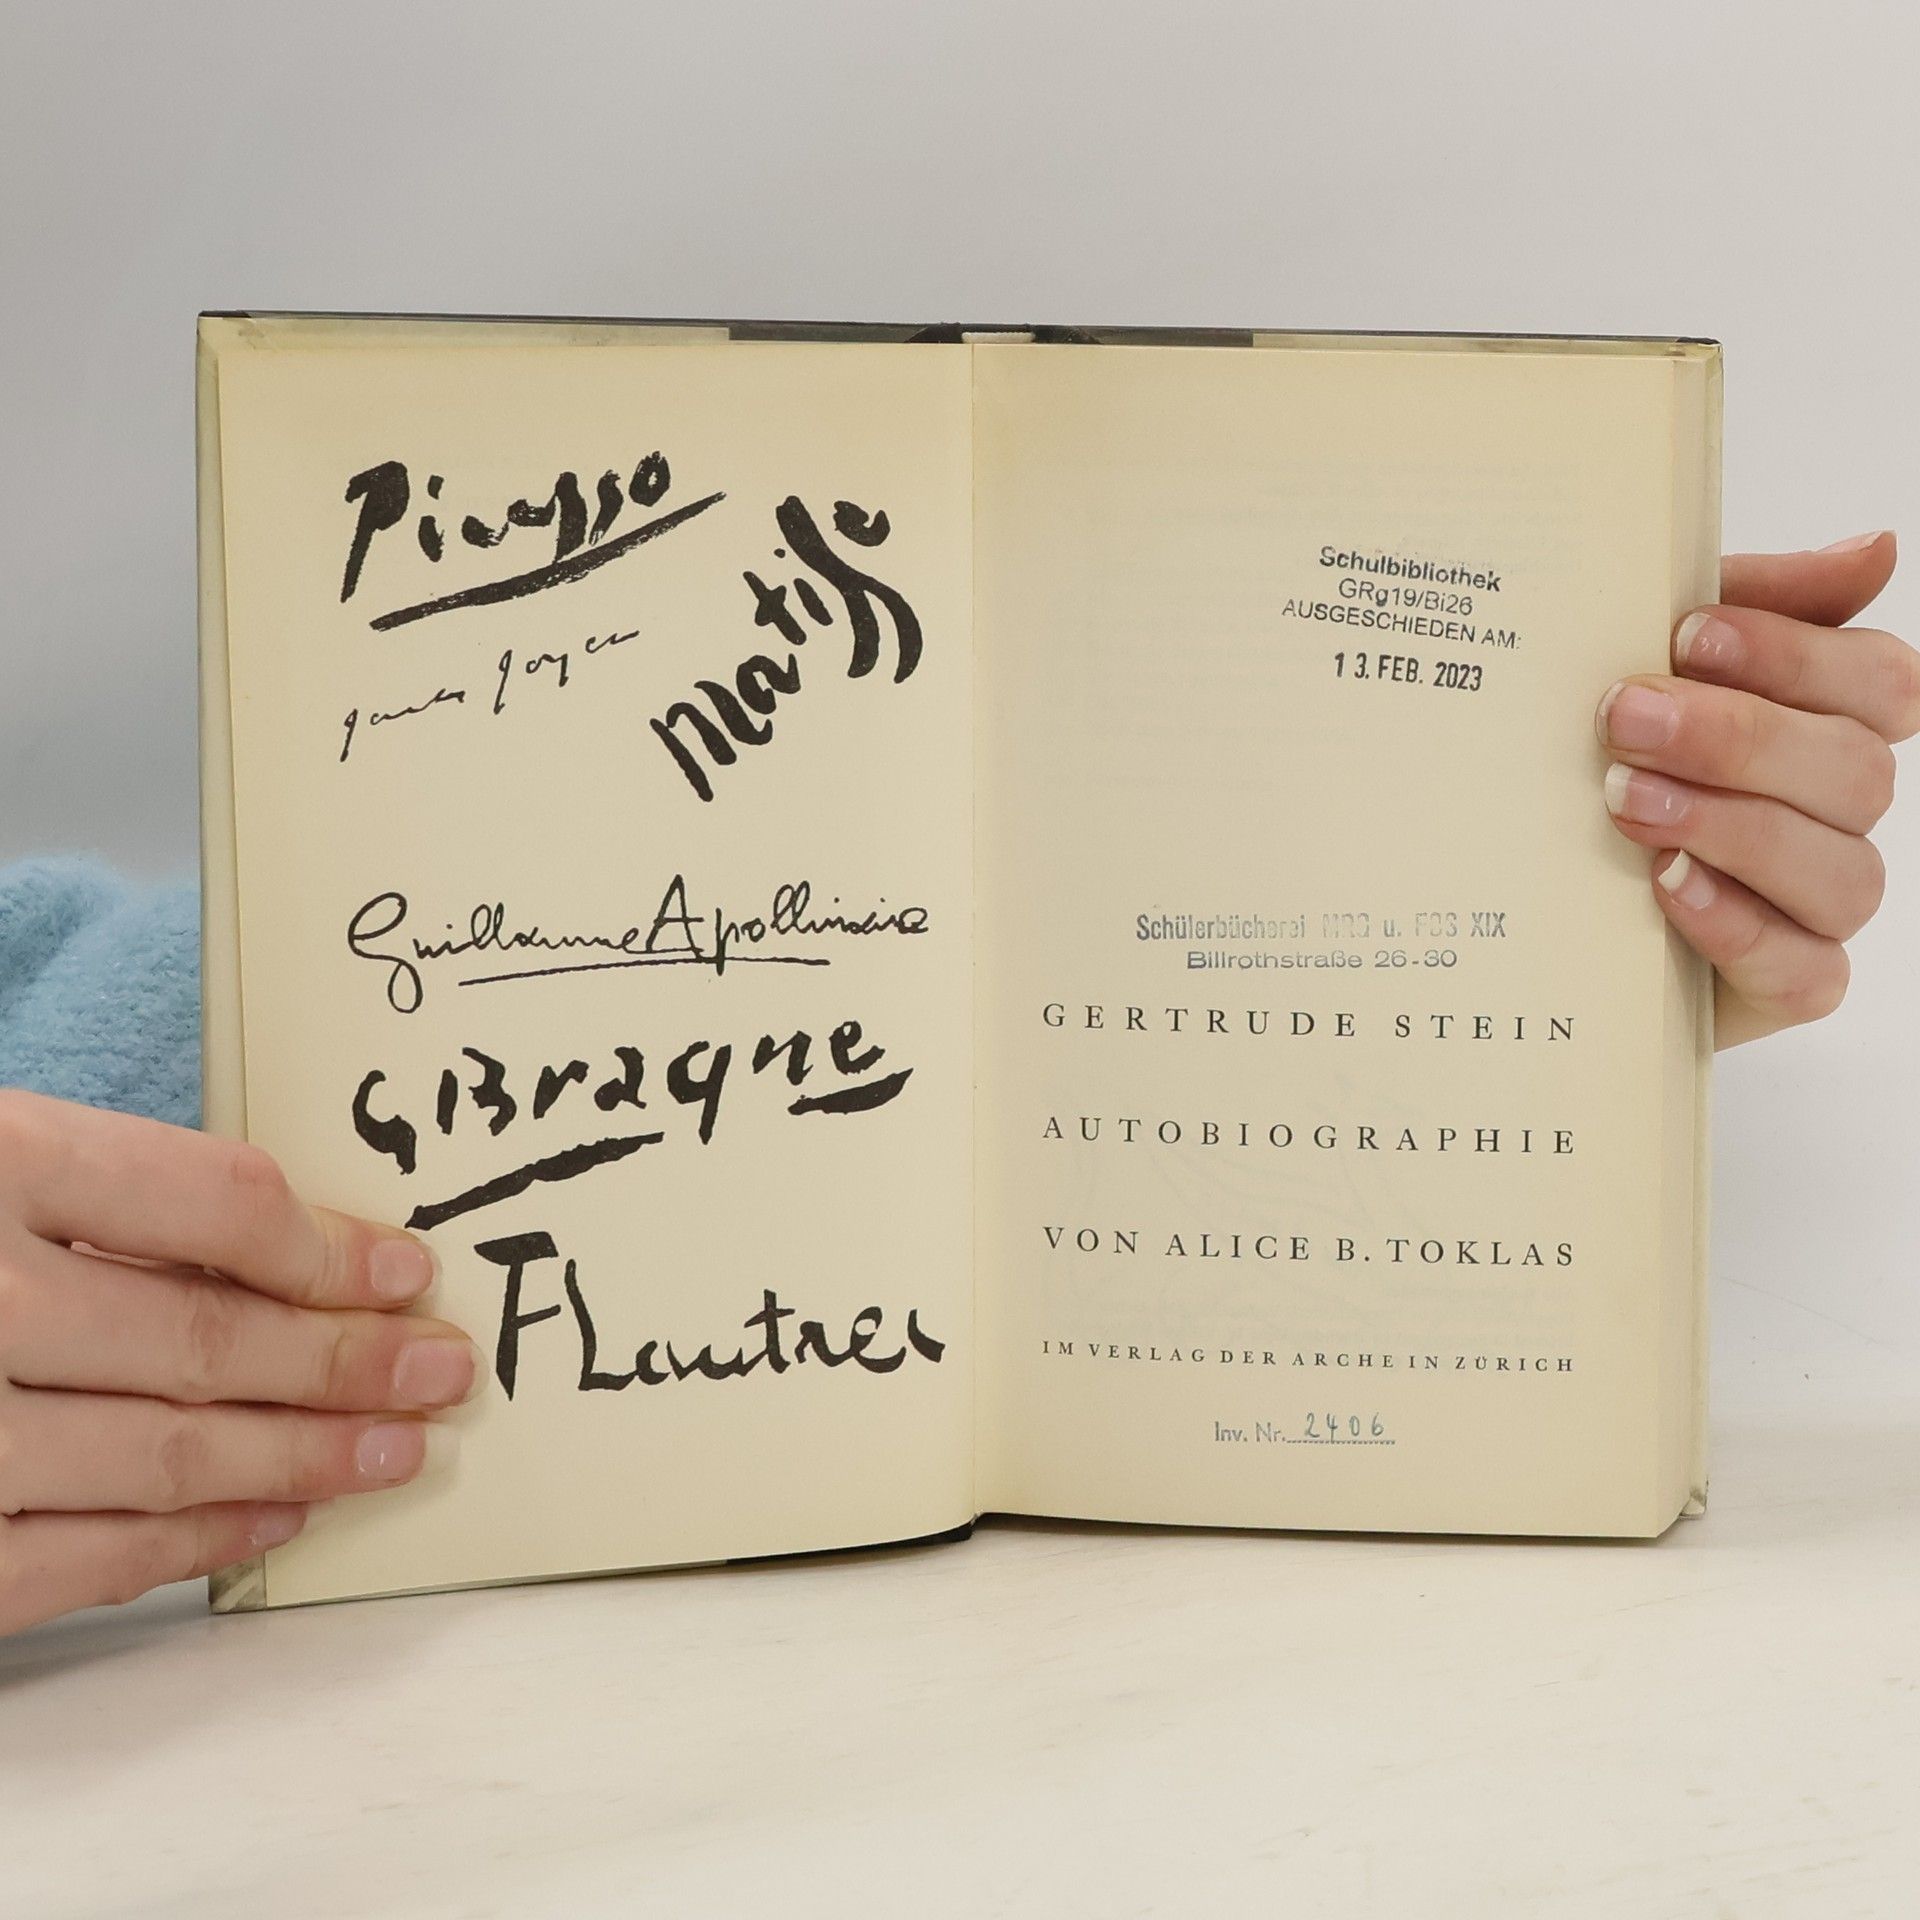 Picasso
James Joyce
Matisse
Guillaume Apollinaire
G Braque
T Lautrec
Schulbibliothek
GRg19/Bi26
AUSGESCHIEDEN AM:
13. FEB. 2023
Schülerbücherei MRG u. FOS XIX
Billrothstraße 26-30
GERTRUDE STEIN
AUTOBIOGRAPHIE
VON ALICE B. TOKLAS
IM VERLAG DER ARCHE IN ZÜRICH
Inv. Nr. 2406